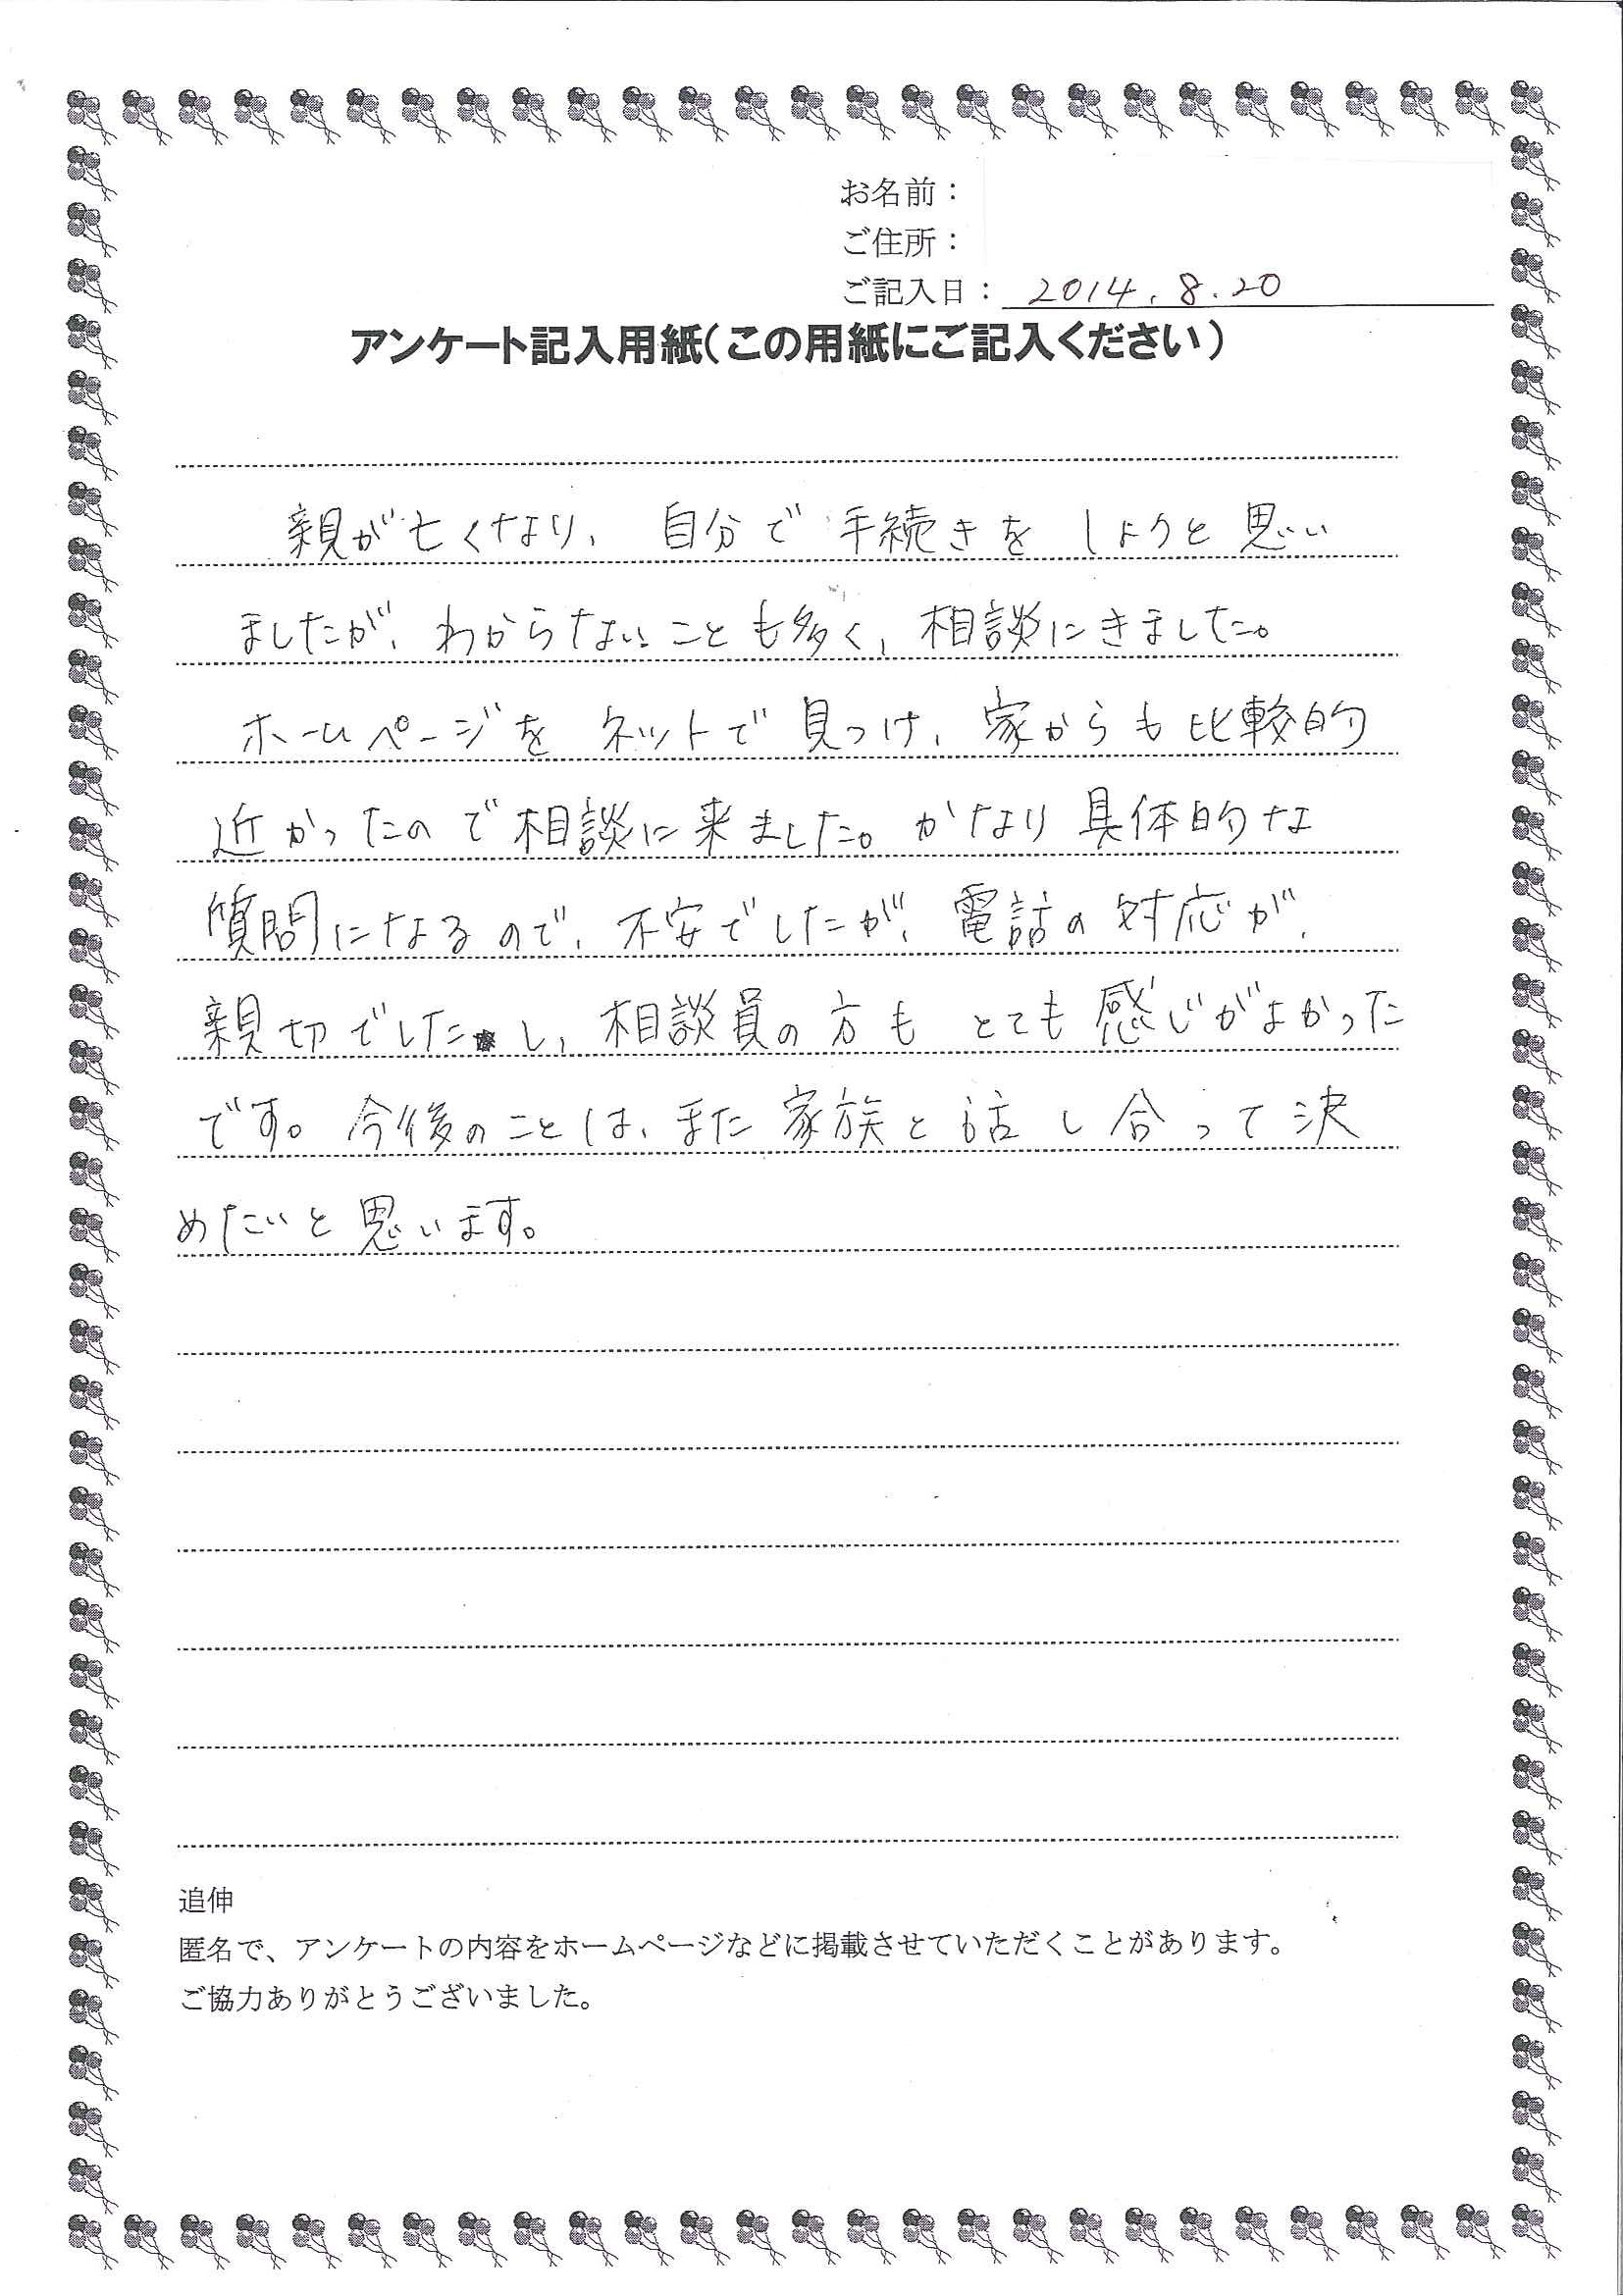 お名前：
ご住所：
ご記入日： 2014.8.20
アンケート記入用紙（この用紙にご記入ください）
親が亡くなり、自分で手続きをしようと思い
ましたが、わからないことも多く、相談にきました。
ホームページをネットで見つけ、家からも比較的
近かったので相談に来ました。かなり具体的な
質問になるので、不安でしたが、電話の対応が、
親切でしたし、相談員の方もとても感じがよかった
です。今後のことは、また家族と話し合って決
めたいと思います。
追伸
匿名で、アンケートの内容をホームページなどに掲載させていただくことがあります。
ご協力ありがとうございました。